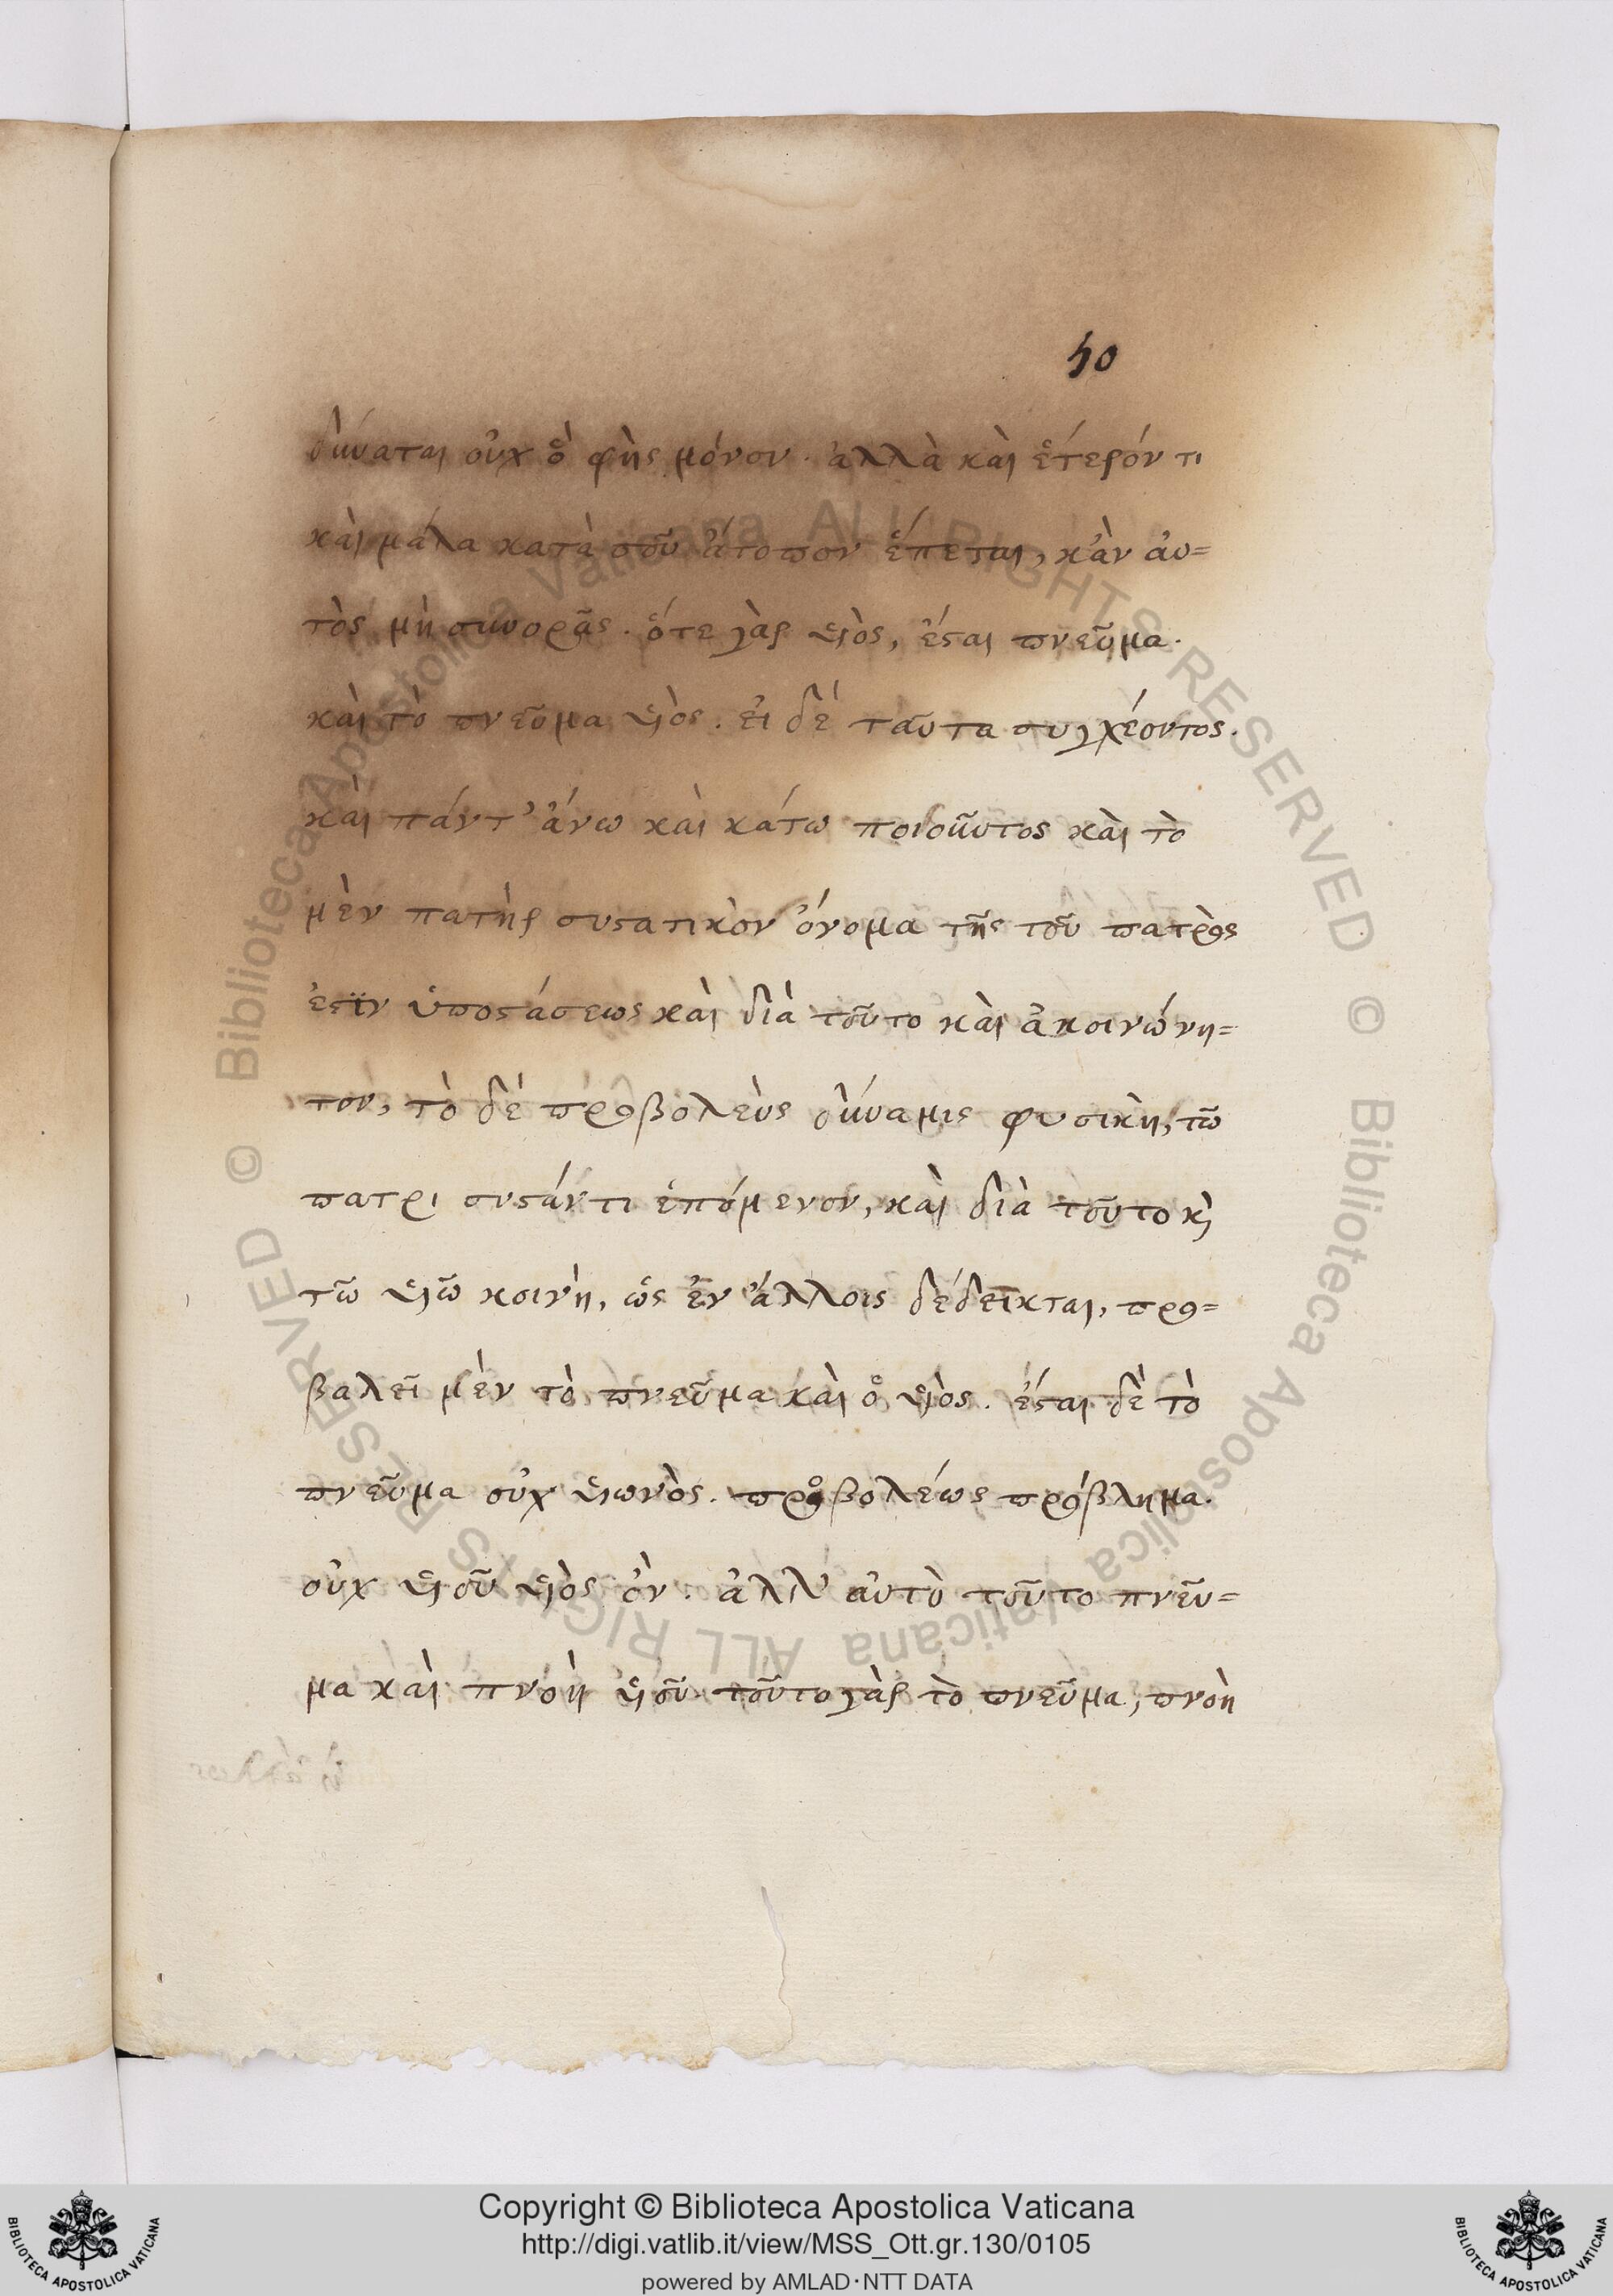 50
δύναται οὐχ ὃ φὴς μόνον. ἀλλὰ καὶ ἕτερόν τι
καὶ μάλα κατὰ σοῦ ἄτοπον ἕπεται, κἂν αὐ=
τὸς μὴ συνορᾶς. ὅτε γὰρ υἱὸς, ἔσται πνεῦμα.
καὶ τὸ πνεῦμα υἱὸς. εἰ δὲ ταῦτα συγχέοντος.
καὶ πάντ' ἄνω καὶ κάτω ποιοῦντος καὶ τὸ
μὲν πατὴρ συστατικὸν ὄνομα τῆς τοῦ πατρὸς
ἐστὶν ὑποστάσεως καὶ διὰ τοῦτο καὶ ἀκοινώνη=
τον, τὸ δὲ προβολεὺς δύναμις φυσικὴ, τῶ
πατρι συστάντι ἑπόμενον, καὶ διὰ τοῦτο κὶ
τῶ υἱῶ κοινὴ, ὡς ἐν ἄλλοις δέδεικται, προ=
βαλεῖ μὲν τὸ πνεῦμα καὶ ὁ υἱὸς. ἔσται δὲ τὸ
πνεῦμα οὐχ υἱωνὸς. προβολέως πρόβλημα.
οὐχ υἱοῦ υἱὸς ὂν. ἀλλ' αὐτὸ τοῦτο πνεῦ=
μα καὶ πνοὴ υἱοῦ τοῦτο γὰρ τὸ πνεῦμα, πνοὴ
Copyright © Biblioteca Apostolica Vaticana
http://digi.vatlib.it/view/MSS_Ott.gr.130/0105
powered by AMLAD·NTT DATA
BIBLIOTECA APOSTOLICA VATICANA
BIBLIOTECA APOSTOLICA VATICANA
© Biblioteca Apostolica Vaticana ALL RIGHTS RESERVED
© Biblioteca Apostolica Vaticana ALL RIGHTS RESERVED